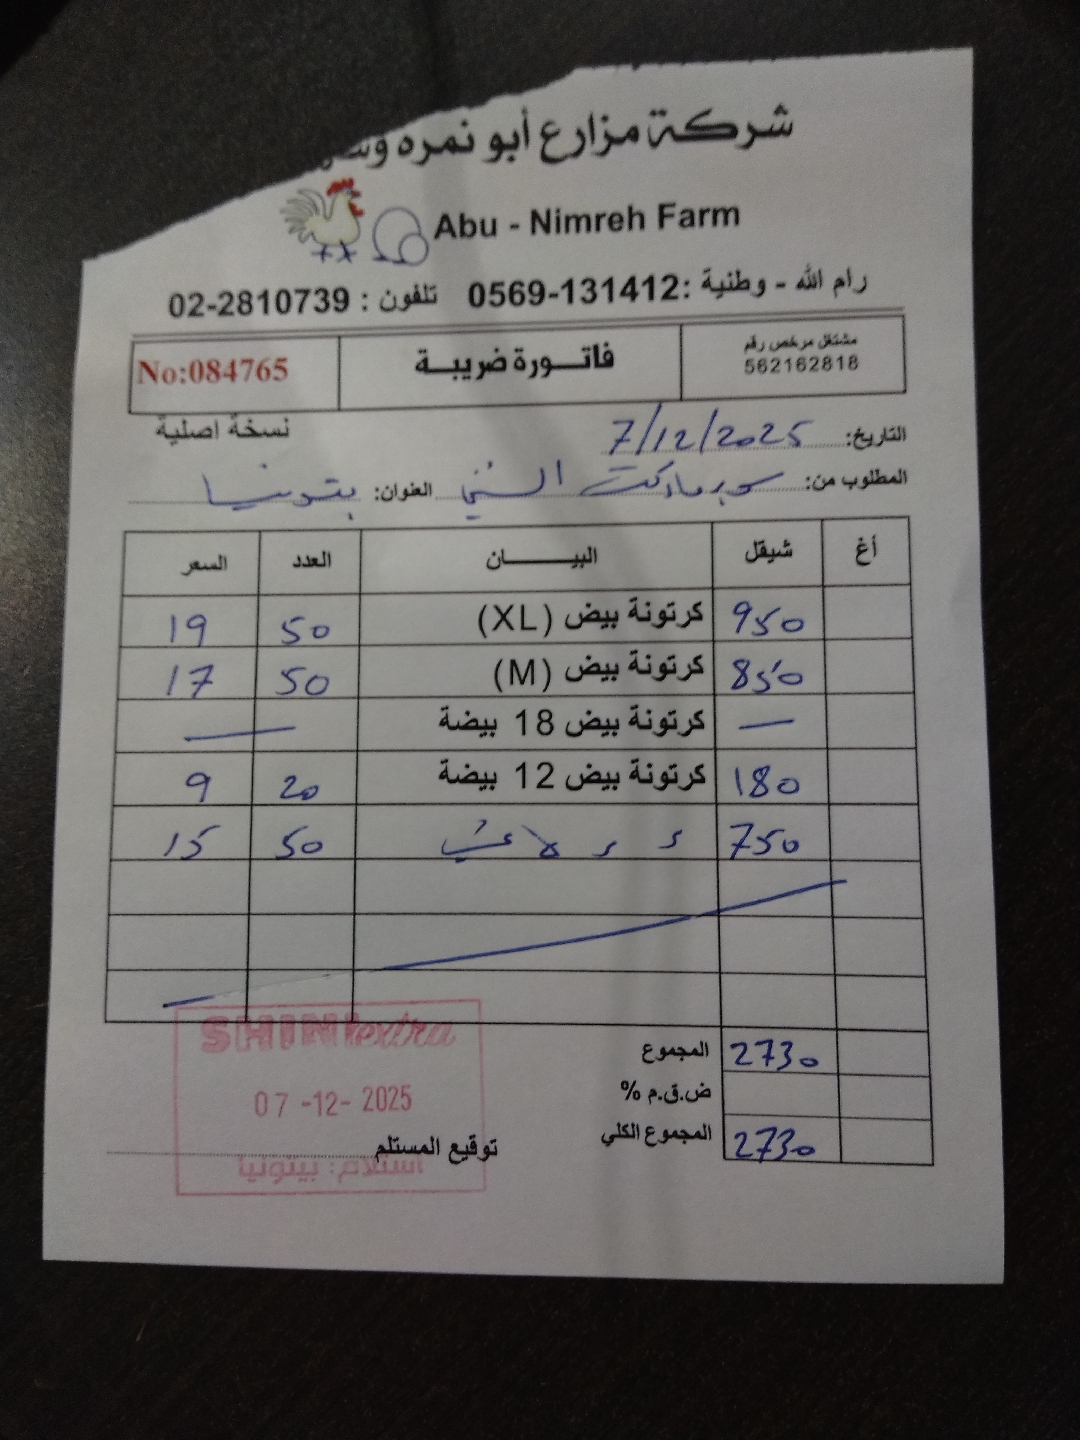 شركة مزارع أبو نمره
Abu - Nimreh Farm
رام الله - وطنية :0569-131412 تلفون : 02-2810739
مشتغل مرخص رقم
562162818
فاتـــورة ضريبـة
No:084765
نسخة اصلية
التاريخ: 7/12/2025
المطلوب من: سوبر ماركت الشني العنوان: بتونيا
أغ شيقل البيـــــــان العدد السعر
950 كرتونة بيض (XL) 50 19
850 كرتونة بيض (M) 50 17
— كرتونة بيض 18 بيضة —
180 كرتونة بيض 12 بيضة 20 9
750 50 15
المجموع 2730
ض.ق.م %
المجموع الكلي 2730
توقيع المستلم
SHINI extra
07 -12- 2025
استلام: بيتونيا